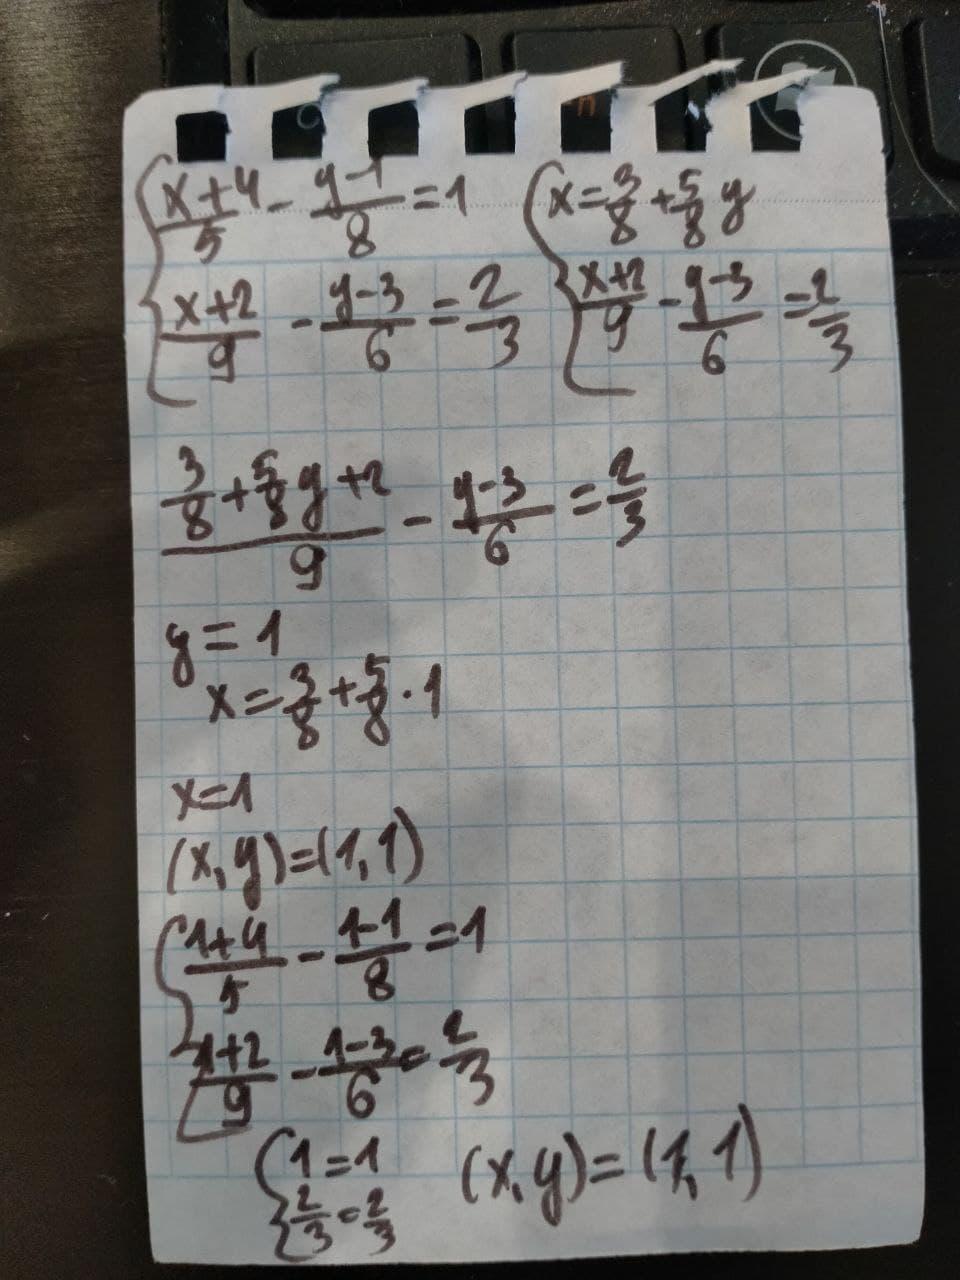 { (x+4)/5 - (y-1)/8 = 1
(x+2)/9 - (y-3)/6 = 2/3
{ x = 3/8 + 5/8 y
(x+2)/9 - (y-3)/6 = 2/3
(3/8 + 5/8 y + 2)/9 - (y-3)/6 = 2/3
y = 1
x = 3/8 + 5/8 · 1
x = 1
(x, y) = (1, 1)
{ (1+4)/5 - (1-1)/8 = 1
(1+2)/9 - (1-3)/6 = 2/3
{ 1 = 1
2/3 = 2/3
(x, y) = (1, 1)